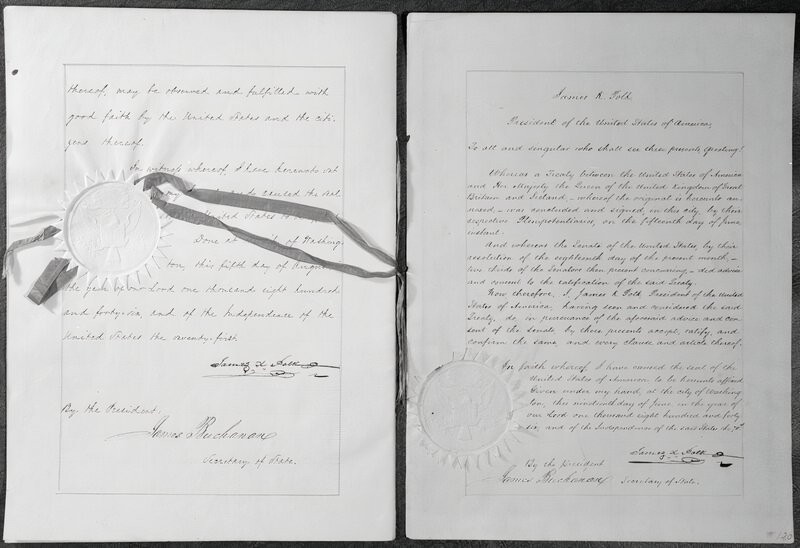 thereof, may be observed and fulfilled with
good faith by the United States and the citi-
zens thereof.
In witness whereof, I have hereunto set
my hand and caused the Seal
United States to be
Done at the City of Washing-
ton, this fifth day of August
the year of our Lord one thousand eight hundred
and forty-six, and of the Independence of the
United States the seventy-first.
James K. Polk
By the President.
James Buchanan
Secretary of State.
James K. Polk,
President of the United States of America,
To all and singular who shall see these presents, Greeting!
Whereas a Treaty between the United States of America
and Her Majesty the Queen of the United Kingdom of Great
Britain and Ireland,—whereof the original is hereunto an-
nexed,—was concluded and signed, in this city, by their
respective Plenipotentiaries, on the fifteenth day of June,
instant.
And whereas the Senate of the United States, by their
resolution of the eighteenth day of the present month,—
two thirds of the Senators then present concurring,—did advise
and consent to the ratification of the said Treaty.
Now therefore, I, James K. Polk, President of the United
States of America, having seen and considered the said
Treaty, do, in pursuance of the aforesaid advice and con-
sent of the Senate, by these presents accept, ratify, and
confirm the same, and every clause and article thereof.
In faith whereof, I have caused the seal of the
United States of America to be hereunto affixed.
Given under my hand, at the city of Washing-
ton, this nineteenth day of June, in the year of
our Lord one thousand eight hundred and forty
six, and of the Independence of the said States the
James K. Polk
By the President
James Buchanan Secretary of State.